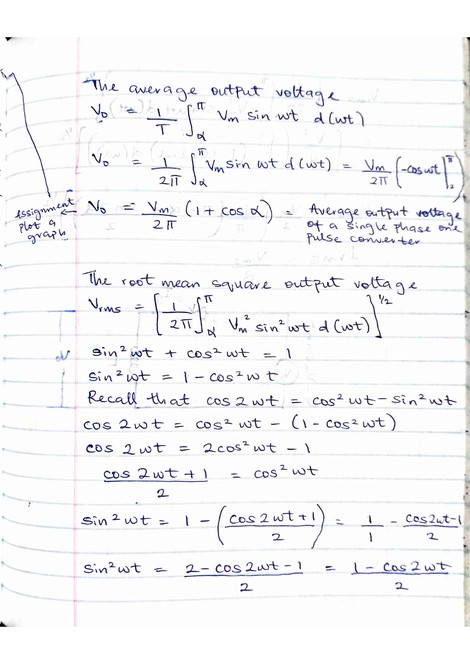 The average output voltage
V₀ = 1/T ∫_α^π Vm sin wt d(wt)
V₀ = 1/2π ∫_α^π Vm sin wt d(wt) = Vm/2π (-cos wt |_2^π)
Assignment plot a graph ← V₀ = Vm/2π (1 + cos α) = Average output voltage
of a single phase one
pulse converter
The root mean square output voltage
Vrms = [1/2π ∫_α^π Vm² sin² wt d(wt)]^1/2
sin² wt + cos² wt = 1
sin² wt = 1 - cos² wt
Recall that cos 2wt = cos² wt - sin² wt
cos 2wt = cos² wt - (1 - cos² wt)
cos 2wt = 2cos² wt - 1
(cos 2wt + 1)/2 = cos² wt
sin² wt = 1 - ((cos 2wt + 1)/2) = 1/1 - (cos2wt-1)/2
sin² wt = (2 - cos 2wt - 1)/2 = (1 - cos 2wt)/2